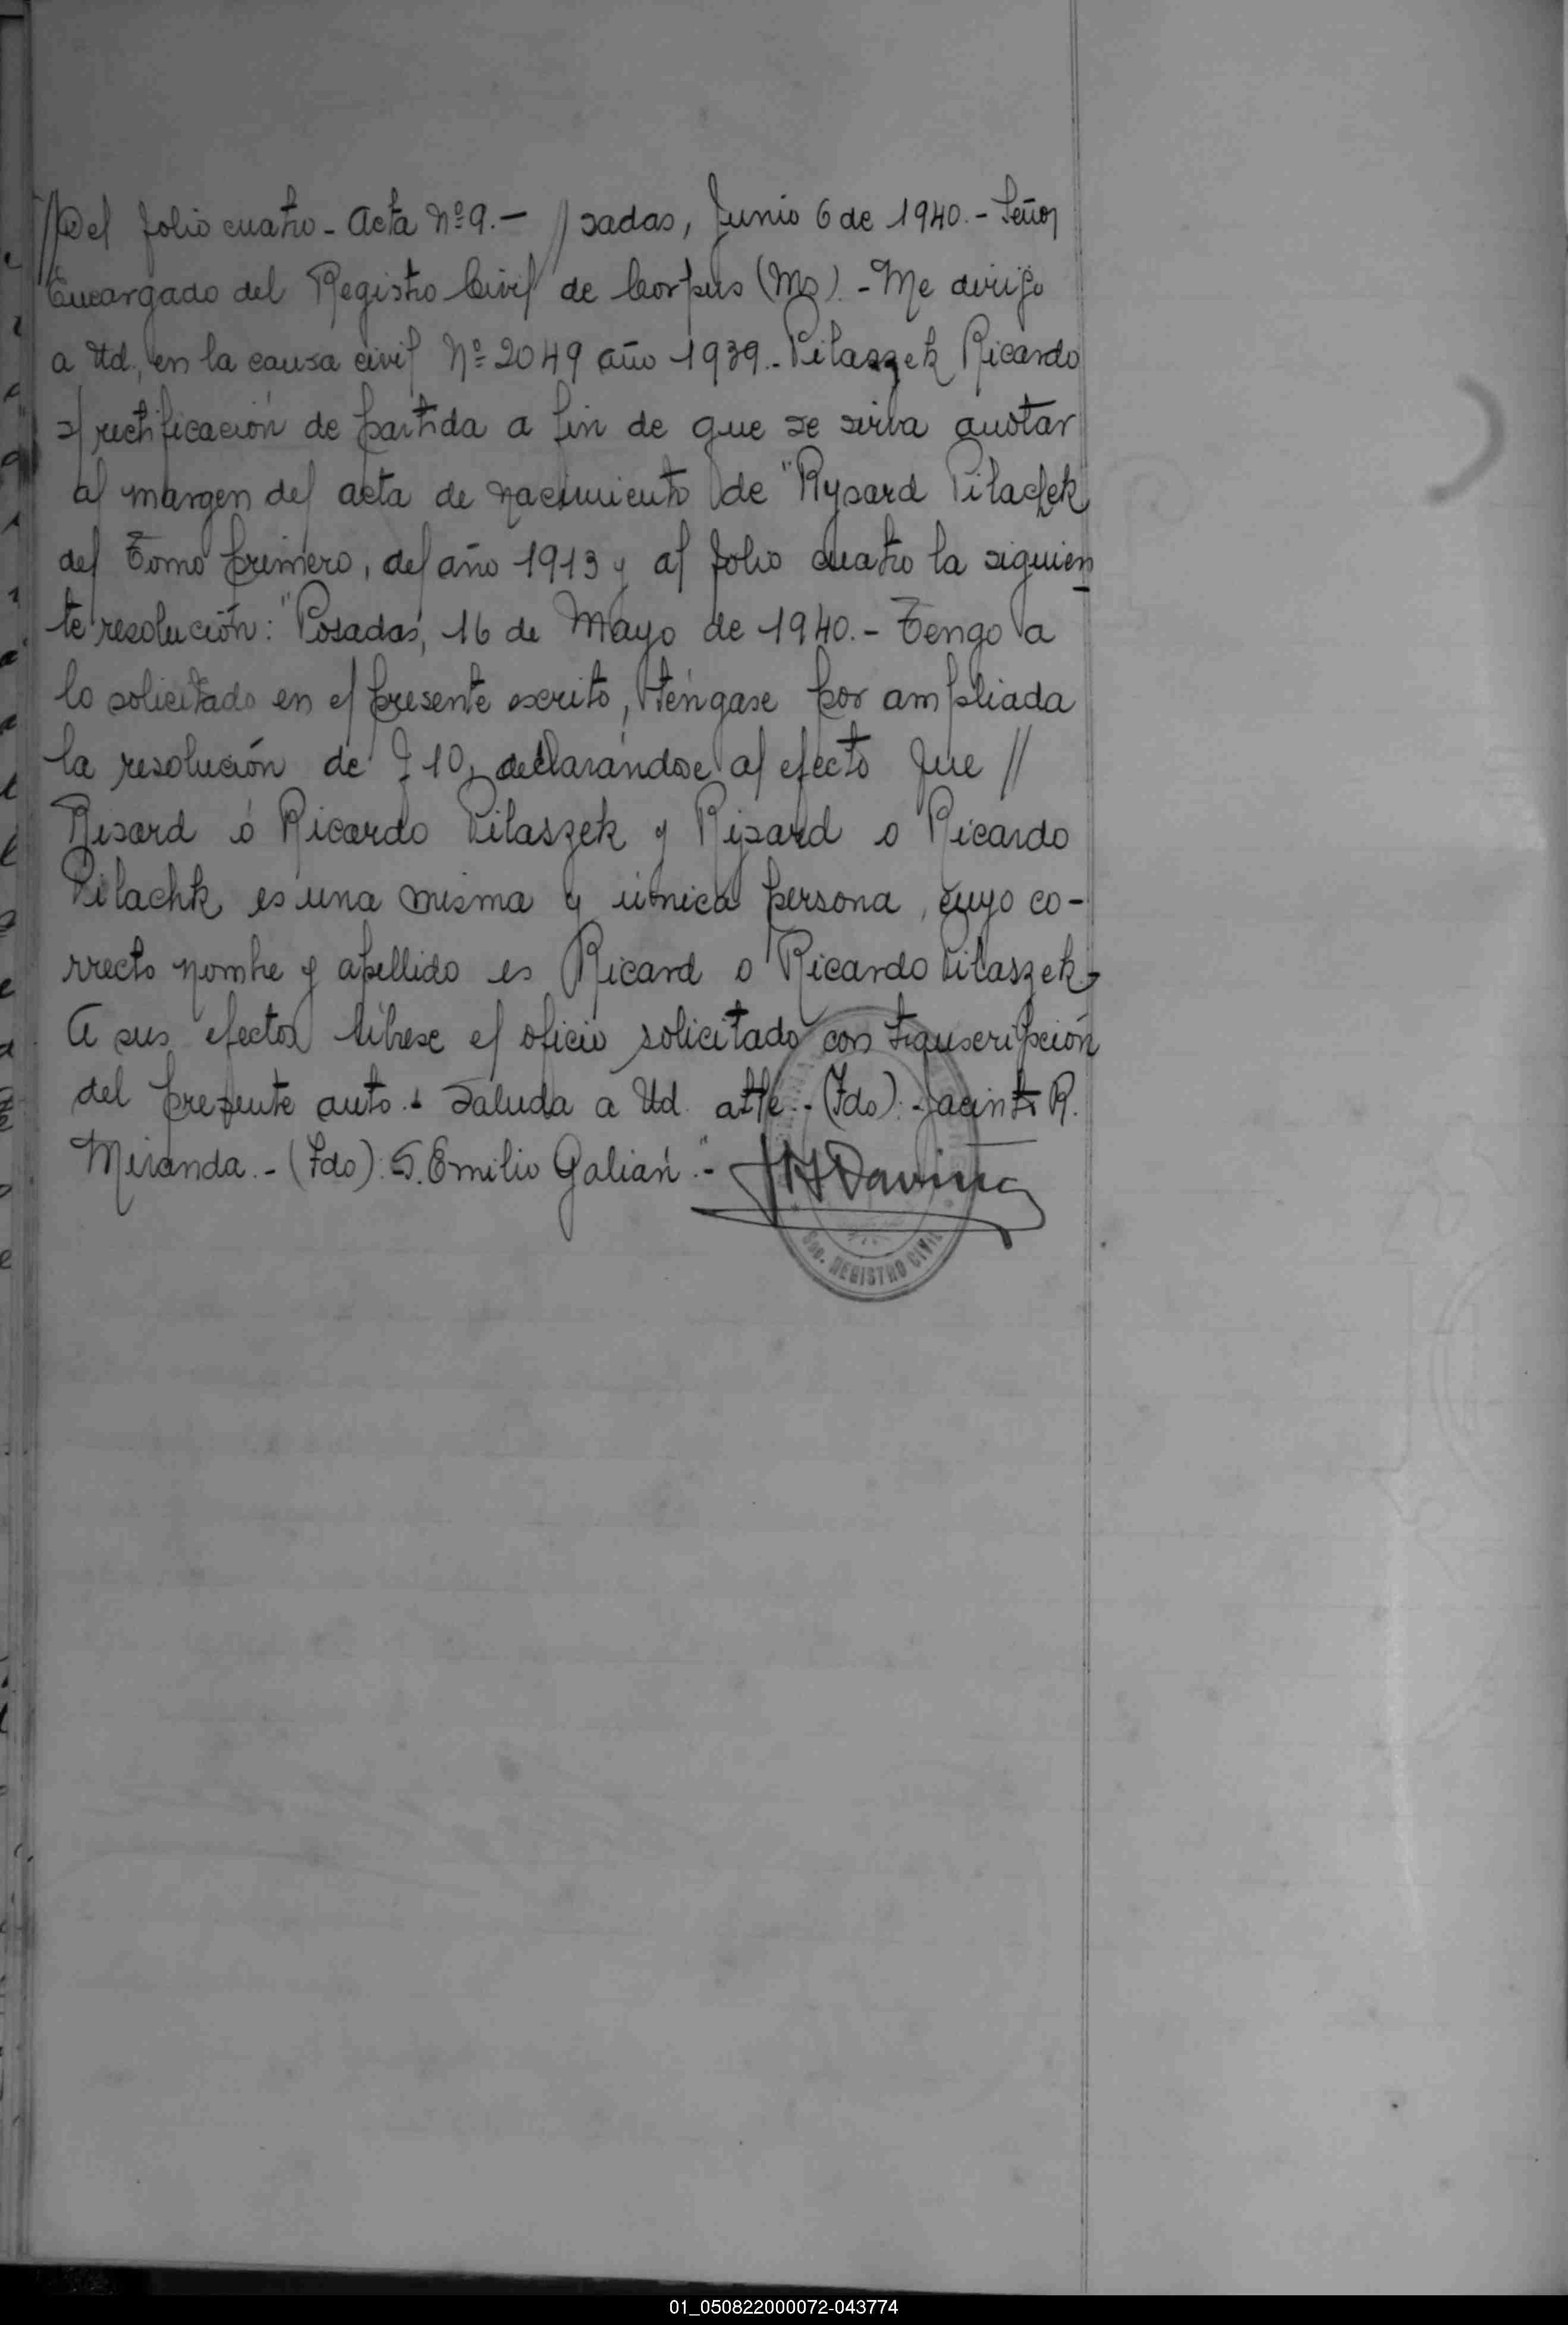 //Del folio cuatro - Acta Nº 9.- //sadas, Junio 6 de 1940.- Señor
Encargado del Registro Civil de Corpus (Ms).- Me dirijo
a Ud, en la causa civil Nº 2049 año 1939.- Pilaszek Ricardo
s/ rectificación de partida a fin de que se sirva anotar
al margen del acta de nacimiento de "Rysard Pilachk
del Tomo primero, del año 1913 y al folio cuatro la siguien
te resolución: "Posadas, 16 de Mayo de 1940.- Tengo a
lo solicitado en el presente escrito, téngase por ampliada
la resolución de f 10, declarándose al efecto que //
Risard ó Ricardo Pilaszek y Risard o Ricardo
Pilachk es una misma y única persona, cuyo co-
rrecto nombre y apellido es Ricard o Ricardo Pilaszek.-
A sus efectos líbrese el oficio solicitado con transcripción
del presente auto.- Saluda a Ud. atte.- (Fdo): Jacinto R.
Miranda.- (Fdo): S. Emilio Galian".-
REGISTRO CIVIL
01_050822000072-043774